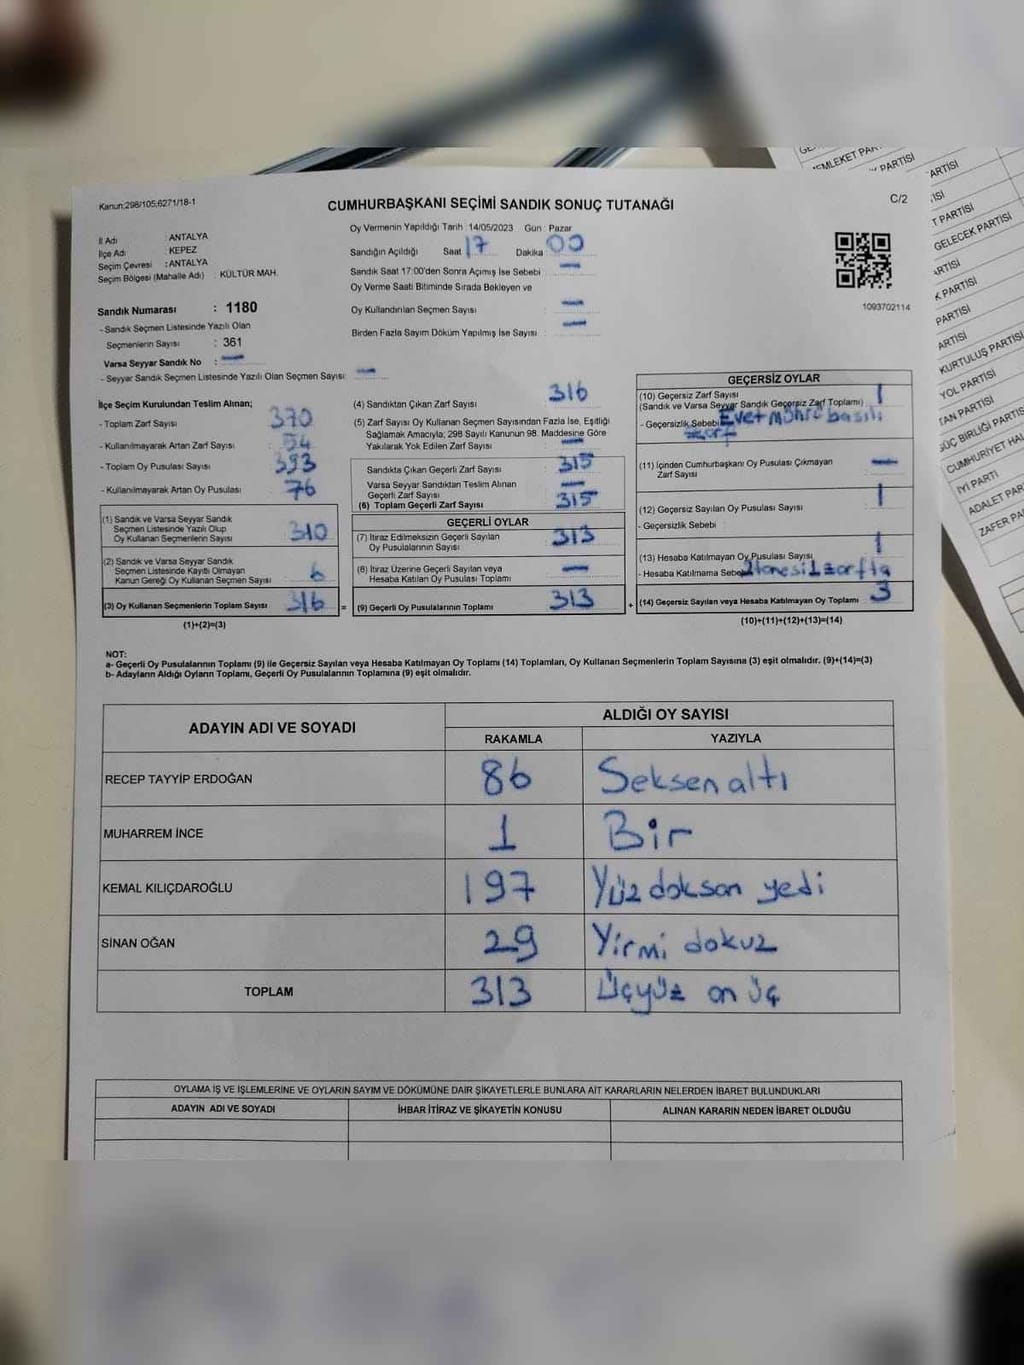 Kanun:298/105;6271/18-1
CUMHURBAŞKANI SEÇİMİ SANDIK SONUÇ TUTANAĞI
C/2
İl Adı : ANTALYA
İlçe Adı : KEPEZ
Seçim Çevresi : ANTALYA
Seçim Bölgesi (Mahalle Adı) : KÜLTÜR MAH.
Sandık Numarası : 1180
- Sandık Seçmen Listesinde Yazılı Olan
Seçmenlerin Sayısı : 361
Varsa Seyyar Sandık No : —
- Seyyar Sandık Seçmen Listesinde Yazılı Olan Seçmen Sayısı: —
Oy Vermenin Yapıldığı Tarih : 14/05/2023 Gün : Pazar
Sandığın Açıldığı Saat 17 Dakika 00
Sandık Saat 17:00'den Sonra Açımış İse Sebebi : —
Oy Verme Saati Bitiminde Sırada Bekleyen ve
Oy Kullandırılan Seçmen Sayısı : —
Birden Fazla Sayım Döküm Yapılmış İse Sayısı : —
1093702114
İlçe Seçim Kurulundan Teslim Alınan;
- Toplam Zarf Sayısı : 370
- Kullanılmayarak Artan Zarf Sayısı : 54
- Toplam Oy Pusulası Sayısı : 393
- Kullanılmayarak Artan Oy Pusulası : 76
(1) Sandık ve Varsa Seyyar Sandık
Seçmen Listesinde Yazılı Olup,
Oy Kullanan Seçmenlerin Sayısı 310
(2) Sandık ve Varsa Seyyar Sandık
Seçmen Listesinde Kayıtlı Olmayan
Kanun Gereği Oy Kullanan Seçmen Sayısı 6
(3) Oy Kullanan Seçmenlerin Toplam Sayısı 316 =
(1)+(2)=(3)
(4) Sandıktan Çıkan Zarf Sayısı : 316
(5) Zarf Sayısı Oy Kullanan Seçmen Sayısından Fazla İse, Eşitliği
Sağlamak Amacıyla; 298 Sayılı Kanunun 98. Maddesine Göre
Yakılarak Yok Edilen Zarf Sayısı : —
Sandıkta Çıkan Geçerli Zarf Sayısı : 315
Varsa Seyyar Sandıktan Teslim Alınan
Geçerli Zarf Sayısı : —
(6) Toplam Geçerli Zarf Sayısı : 315
GEÇERLİ OYLAR
(7) İtiraz Edilmeksizin Geçerli Sayılan
Oy Pusulalarının Sayısı : 313
(8) İtiraz Üzerine Geçerli Sayılan veya
Hesaba Katılan Oy Pusulası Toplamı : —
(9) Geçerli Oy Pusulalarının Toplamı : 313 +
GEÇERSİZ OYLAR
(10) Geçersiz Zarf Sayısı : 1
(Sandık ve Varsa Seyyar Sandık Geçersiz Zarf Toplamı)
- Geçersizlik Sebebi : Evet mührü basılı
zarf
(11) İçinden Cumhurbaşkanı Oy Pusulası Çıkmayan
Zarf Sayısı : —
(12) Geçersiz Sayılan Oy Pusulası Sayısı : 1
- Geçersizlik Sebebi :
(13) Hesaba Katılmayan Oy Pusulası Sayısı : 1
- Hesaba Katılmama Sebebi : 2 tanesi 1 zarfta
(14) Geçersiz Sayılan veya Hesaba Katılmayan Oy Toplamı : 3
(10)+(11)+(12)+(13)=(14)
NOT:
a- Geçerli Oy Pusulalarının Toplamı (9) ile Geçersiz Sayılan veya Hesaba Katılmayan Oy Toplamı (14) Toplamları, Oy Kullanan Seçmenlerin Toplam Sayısına (3) eşit olmalıdır. (9)+(14)=(3)
b- Adayların Aldığı Oyların Toplamı, Geçerli Oy Pusulalarının Toplamına (9) eşit olmalıdır.
ADAYIN ADI VE SOYADI ALDIĞI OY SAYISI
RAKAMLA YAZIYLA
RECEP TAYYİP ERDOĞAN 86 Seksen altı
MUHARREM İNCE 1 Bir
KEMAL KILIÇDAROĞLU 197 Yüz doksan yedi
SİNAN OĞAN 29 Yirmi dokuz
TOPLAM 313 Üçyüz on üç
OYLAMA İŞ VE İŞLEMLERİNE VE OYLARIN SAYIM VE DÖKÜMÜNE DAİR ŞİKAYETLERLE BUNLARA AİT KARARLARIN NELERDEN İBARET BULUNDUKLARI
ADAYIN ADI VE SOYADI İHBAR İTİRAZ VE ŞİKAYETİN KONUSU ALINAN KARARIN NEDEN İBARET OLDUĞU
PARTİSİ
T PARTİSİ
GELECEK PARTİSİ
K PARTİSİ
PARTİSİ
KURTULUŞ PARTİSİ
YOL PARTİSİ
GÜÇ BİRLİĞİ PARTİSİ
CUMHURİYET HAL
İYİ PARTİ
ADALET PAR
ZAFER PAR